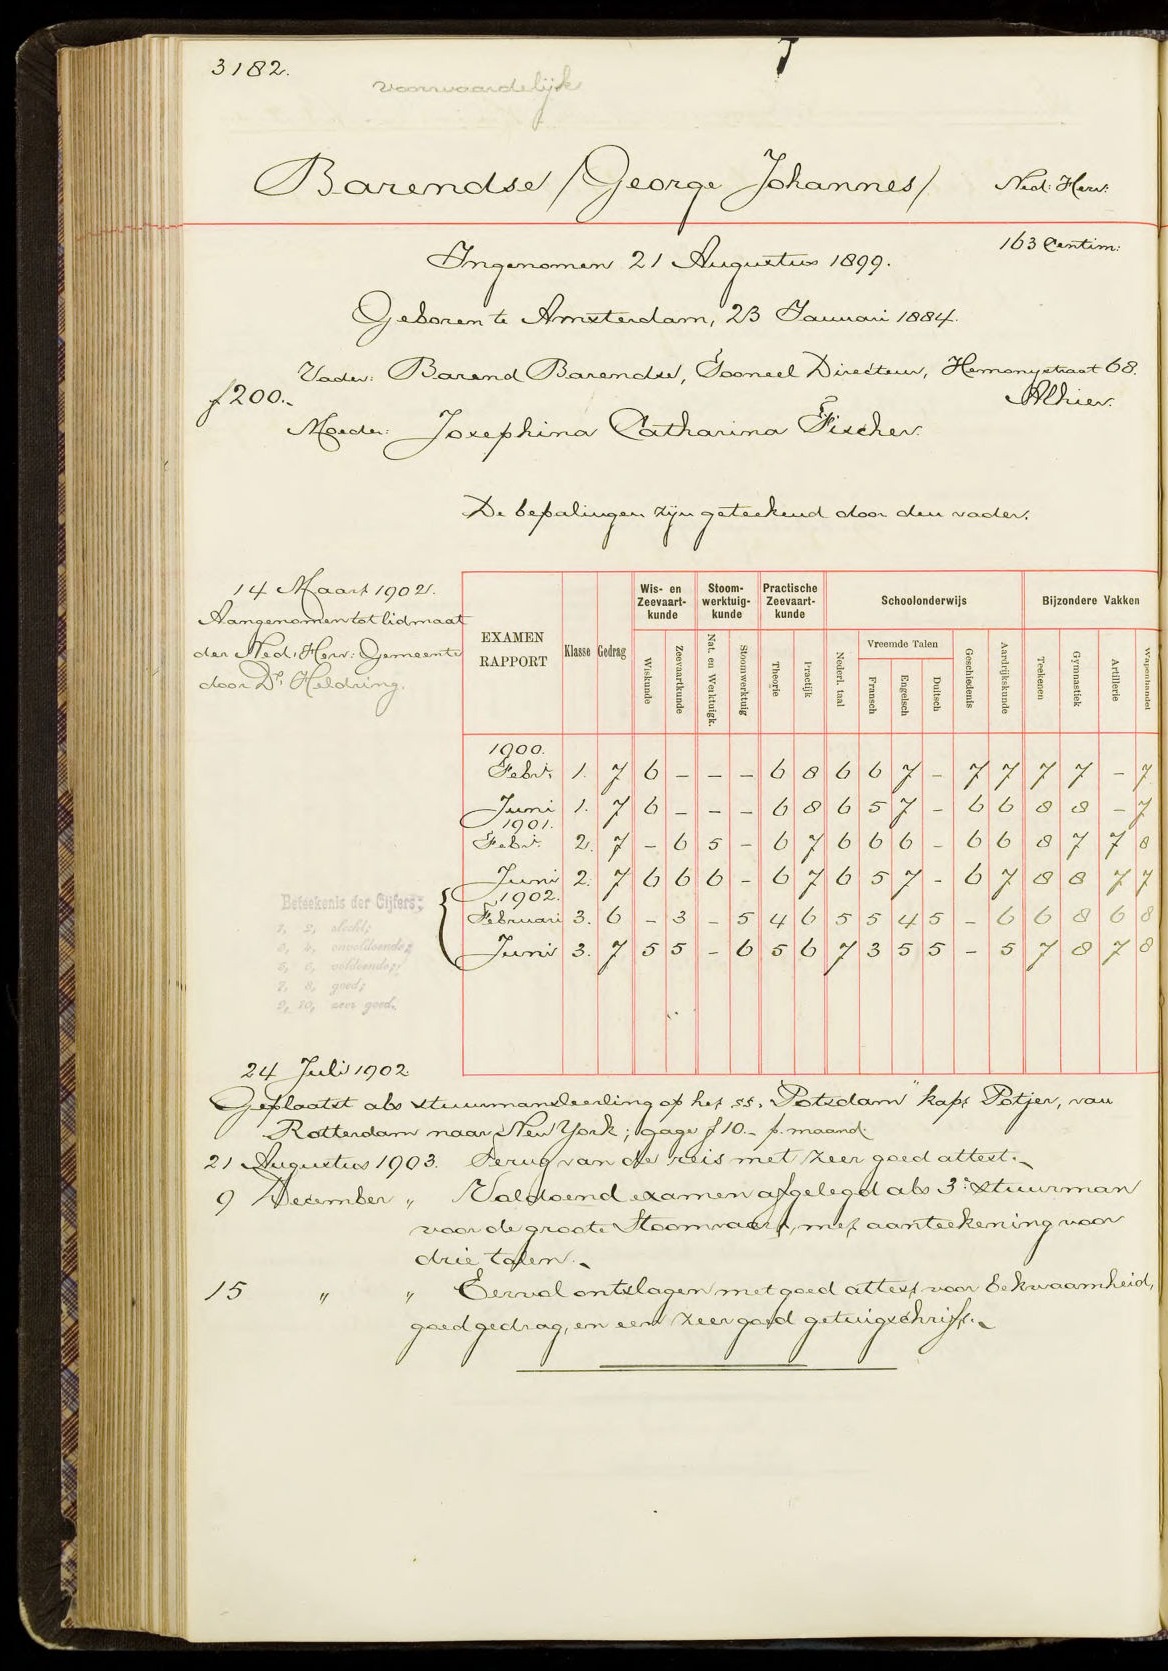 3182.
voorwaardelijk
Barendse (George Johannes) Ned: Herv:
163 Centim:
Ingenomen 21 Augustus 1899.
Geboren te Amsterdam, 23 Januari 1884.
Vader: Barend Barendse, Tooneel Directeur, Hemonystraat 68.
f 200.- Alhier.
Moeder: Josephina Catharina Fischer.
De bepalingen zijn geteekend door den vader.
14 Maart 1902.
Aangenomen tot lidmaat
der Ned: Herv: Gemeente
door Ds. Heldring.
EXAMEN RAPPORT Klasse Gedrag
Wis- en Zeevaartkunde Stoomwerktuigkunde Practische Zeevaartkunde Schoolonderwijs Bijzondere Vakken
Vreemde Talen
Wiskunde Zeevaartkunde Nat. en Werktuigk. Stoomwerktuig Theorie Practijk Nederl. taal Fransch Engelsch Duitsch Geschiedenis Aardrijkskunde Teekenen Gymnastiek Artillerie Wapenhandel
1900.
Febr. 1. 7 6 - - - 6 8 6 6 7 - 7 7 7 7 - 7
Juni 1. 7 6 - - - 6 8 6 5 7 - 6 6 8 8 - 7
1901.
Febr. 2. 7 - 6 5 - 6 7 6 6 6 - 6 6 8 7 7 8
Juni 2. 7 6 6 6 - 6 7 6 5 7 - 6 7 8 8 7 7
1902.
Februari 3. 6 - 3 - 5 4 6 5 5 4 5 - 6 6 8 6 8
Juni 3. 7 5 5 - 6 5 6 7 3 5 5 - 5 7 8 7 8
Beteekenis der Cijfers:
1, 2, slecht;
3, 4, onvoldoende;
5, 6, voldoende;
7, 8, goed;
9, 10, zeer goed.
24 Juli 1902
Geplaatst als stuurmansleerling op het ss. "Potsdam" kapt Potjer, van
Rotterdam naar New York; gage f 10.- p. maand.
21 Augustus 1903. Terug van de reis met zeer goed attest.-
9 December " Voldoend examen afgelegd als 3e stuurman
voor de groote Stoomvaart, met aanteekening voor
drie talen.-
15 " " Eervol ontslagen met goed attest voor bekwaamheid,
goed gedrag, en een zeer goed getuigschrift.-